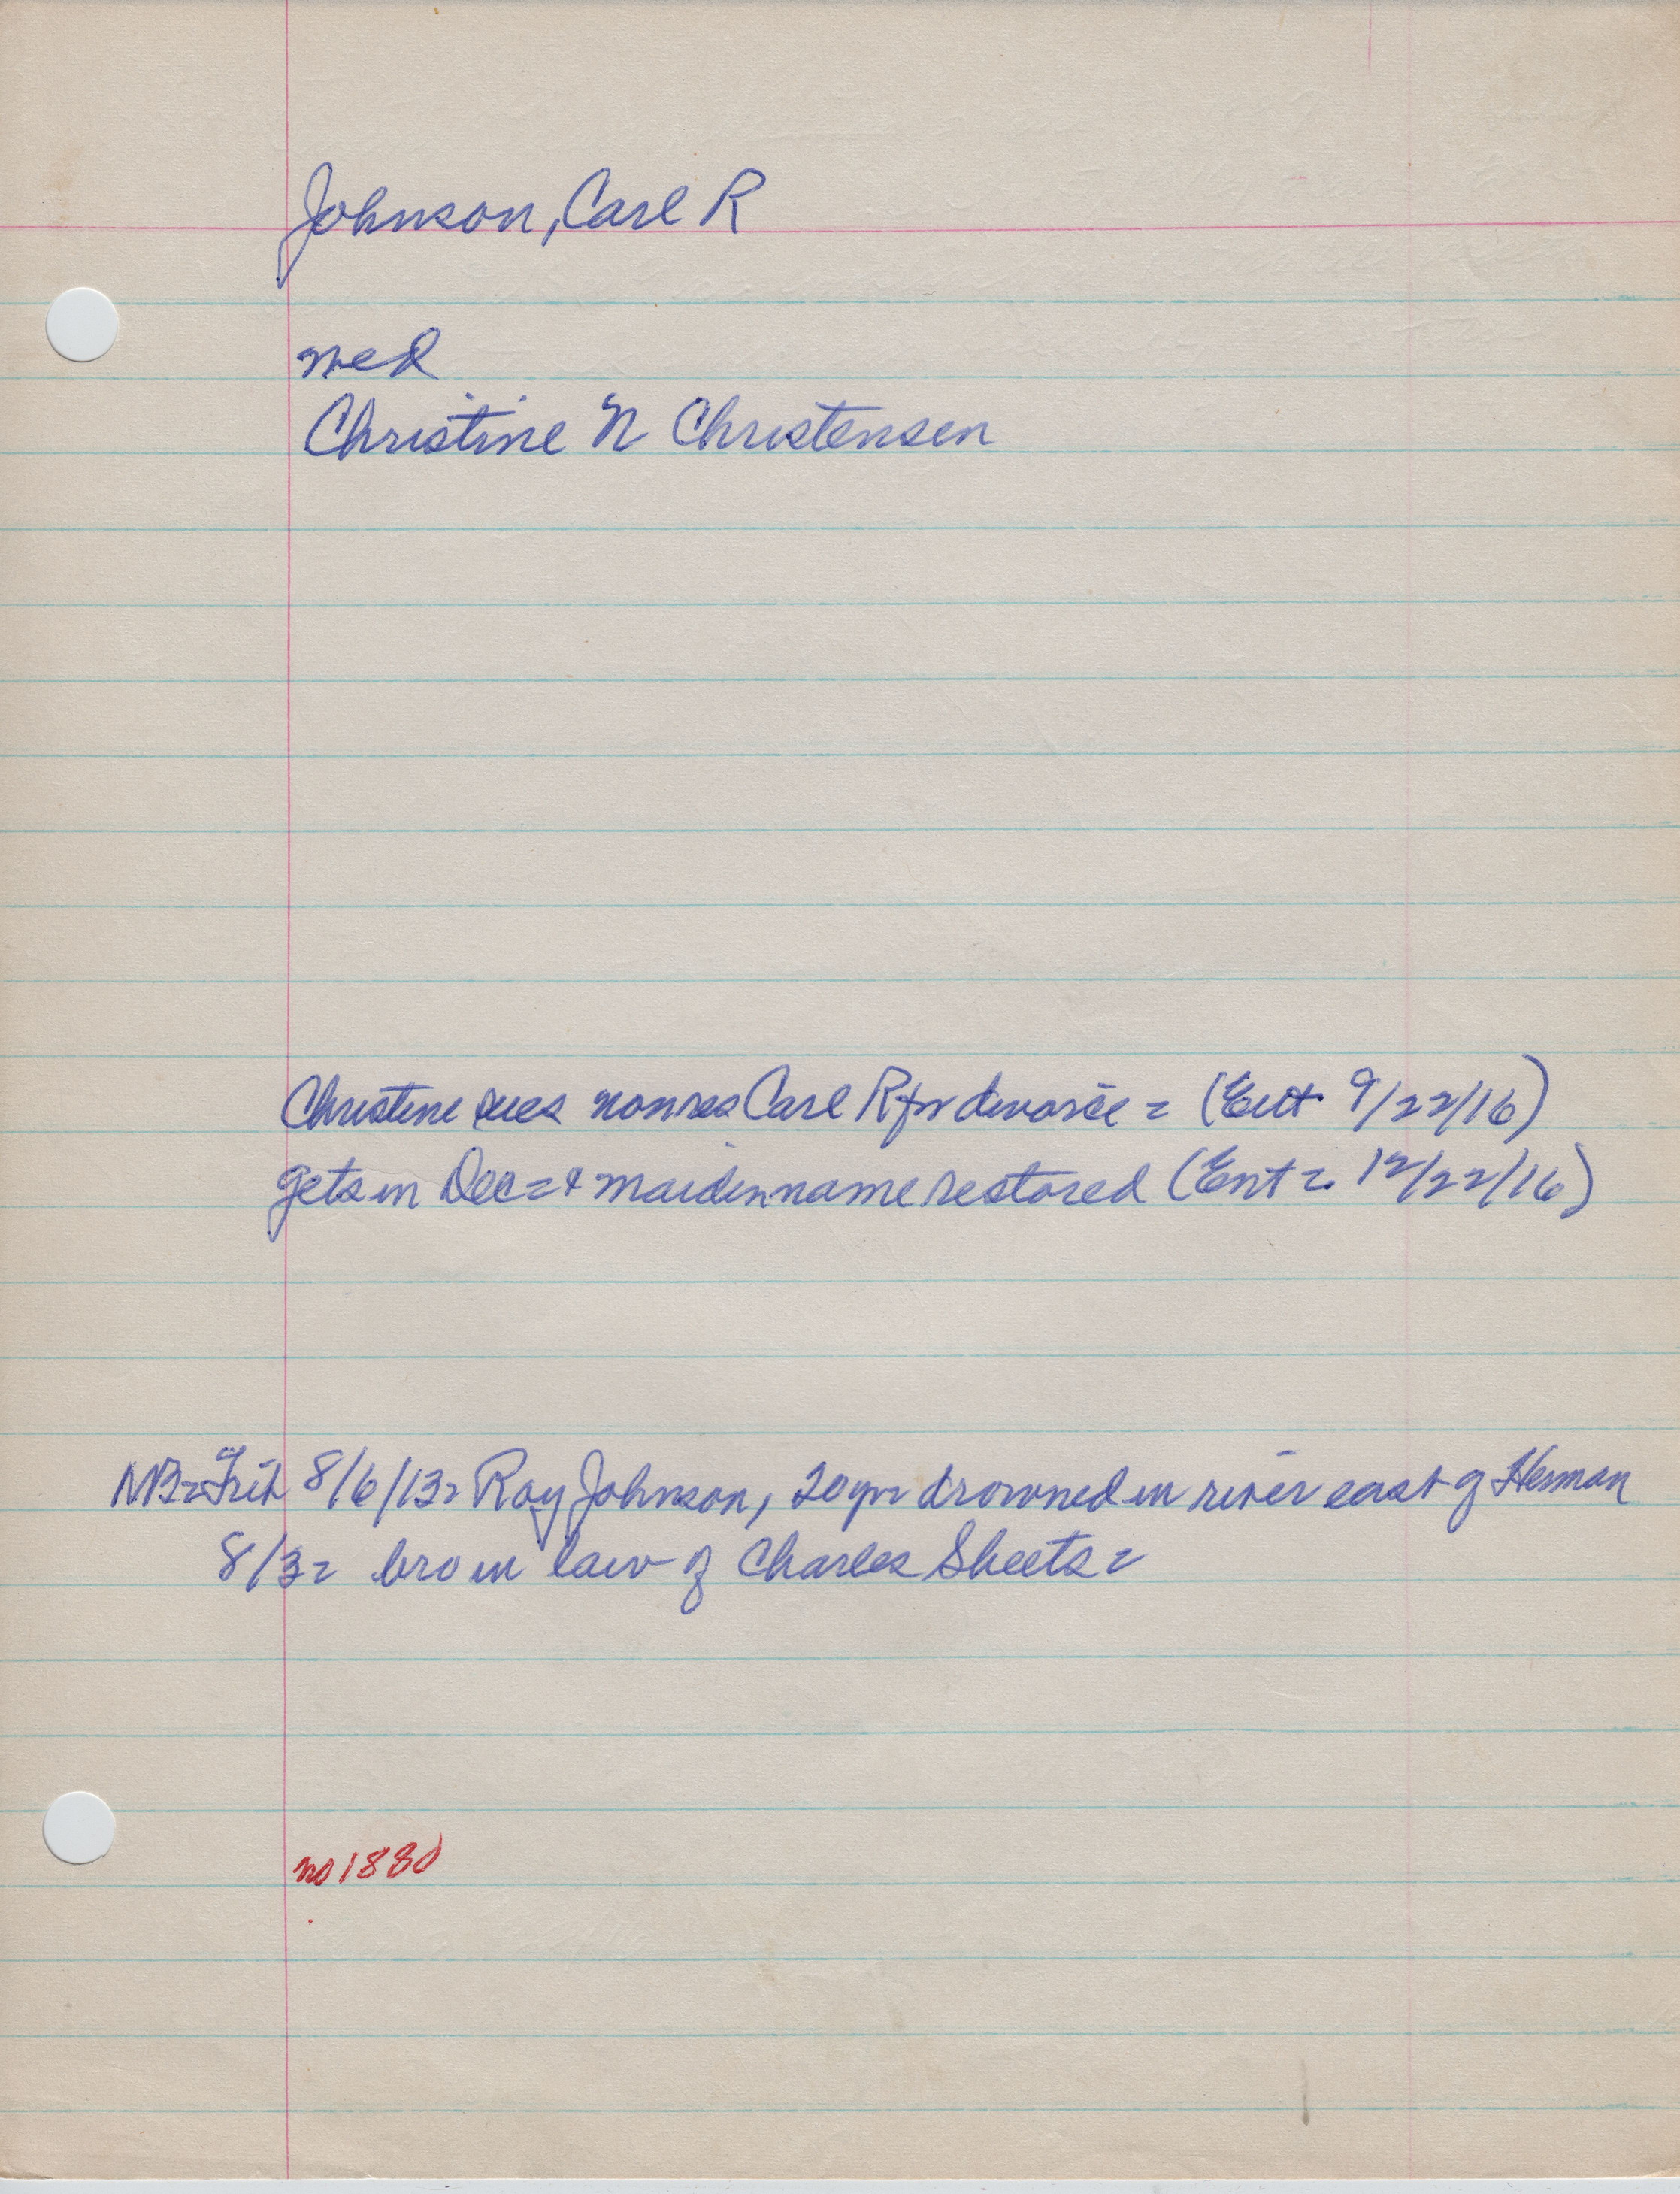 Johnson, Carl R
med
Christine N Christensen
Christine sues nonres Carl R for divorce = (Ent 9/22/16)
gets in Dec = & maiden name restored (Ent = 12/22/16)
NB = Trib 8/6/13 = Roy Johnson, 20yr drowned in river east of Herman
8/3 = bro in law of Charles Sheets =
no 1880